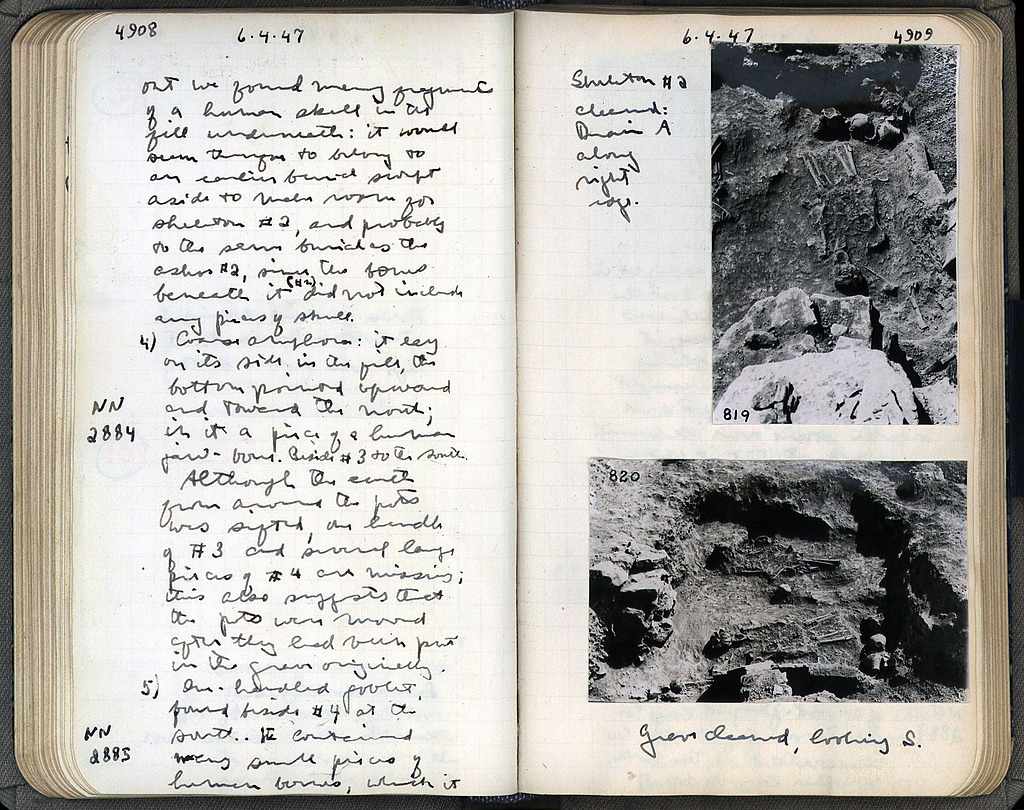 4908
6.4.47
out we found many fragments
of a human skull in the
fill underneath: it would
seem therefore to belong to
an earlier burial swept
aside to make room for
skeleton #2, and probably
to the same burial as the
ashes #2, since the bones
beneath it (#2) did not include
any pieces of skull.
4) Coarse amphora: it lay
on its side in the fill, the
bottom pointed upward
and toward the north;
NN
2884
in it a piece of a human
jaw-bone. Beside #3 to the south.
Although the earth
from around the pots
was sifted, one handle
of #3 and several large
pieces of #4 are missing;
this also suggests that
the pots were moved
after they had been put
in the grave originally.
5) One-handled goblet,
found beside #4 at the
NN
2885
south.. It contained
many small pieces of
human bones, which it
6.4.47
4909
Skeleton #2
cleaned:
Drain A
along
right
edge.
819
820
Grave cleaned, looking S.